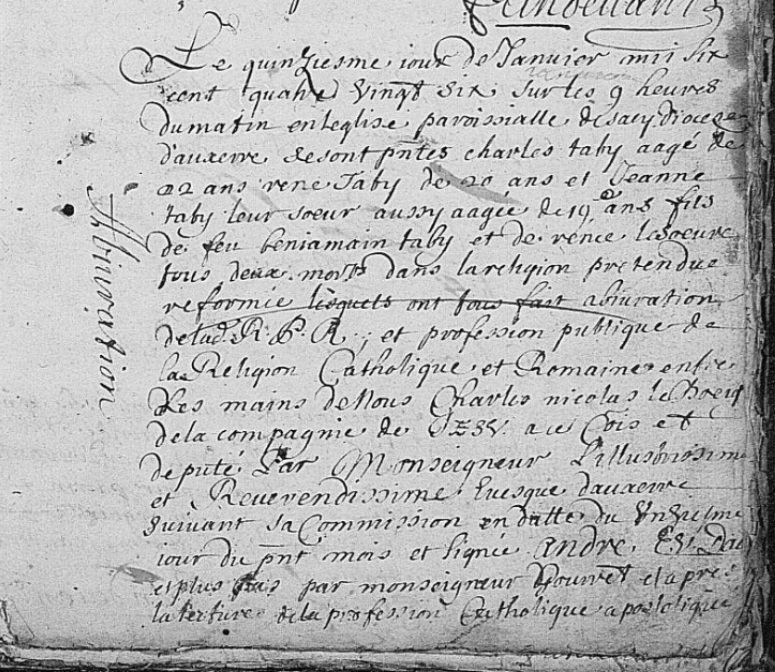 Le quinziesme iour de Januier mil six
cent quatre vingt six sur les 9 heures
du matin en leglise paroissialle de sacy diocese
d'auxerre se sont pntes charles taby aagé de
22 ans rene Taby de 20 ans et Jeanne
taby leur soeur aussy aagee de 19 ans fils
de feu beniamain taby et de renee lesoeure
tous deux morts dans la religion pretendue
reformée lesquels ont tous fait abiuration
de lad. R. P. R., et profession publique de
la Religion Catholique et Romaine entre
Les mains de Nous Charles nicolas
de la compagnie de et
deputé Par Monseigneur L'illustrissime
et Reuerendissime Euesque d'auxerre
suiuant sa Commission en datte du unziesme
iour du pnt mois et signée. André, Ev.
et plus bas par monseigneur et apre.
la lecture de la profession Catholique apostolique
Abiuration